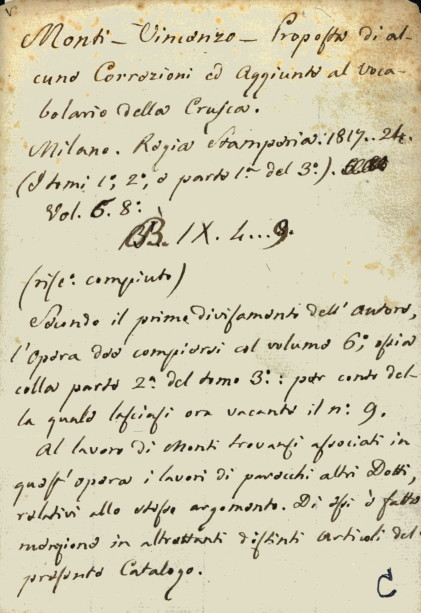 Monti – Vincenzo – Proposta di al-
cune Correzioni ed Aggiunte al Voca-
bolario della Crusca.
Milano. Regia Stamperia. 1817..24.
(I tomi 1°, 2°, e parte 1ª del 3°).
Vol. 6. 8°.
B. IX. 4...9.
(rife° compiuto)
Secondo il prime divisamento dell' autore,
l'Opera dee compiersi col volume 6°, ossia
colla parte 2ª del tomo 3°: per conto del-
la quale lasciasi ora vacante il n° 9.
Al lavoro di Monti trovansi associati in
quest' opera i lavori di parecchi altri Dotti,
relativi allo stesso argomento. Di essi è fatta
menzione in altrettanti distinti articoli del
presente Catalogo.
C